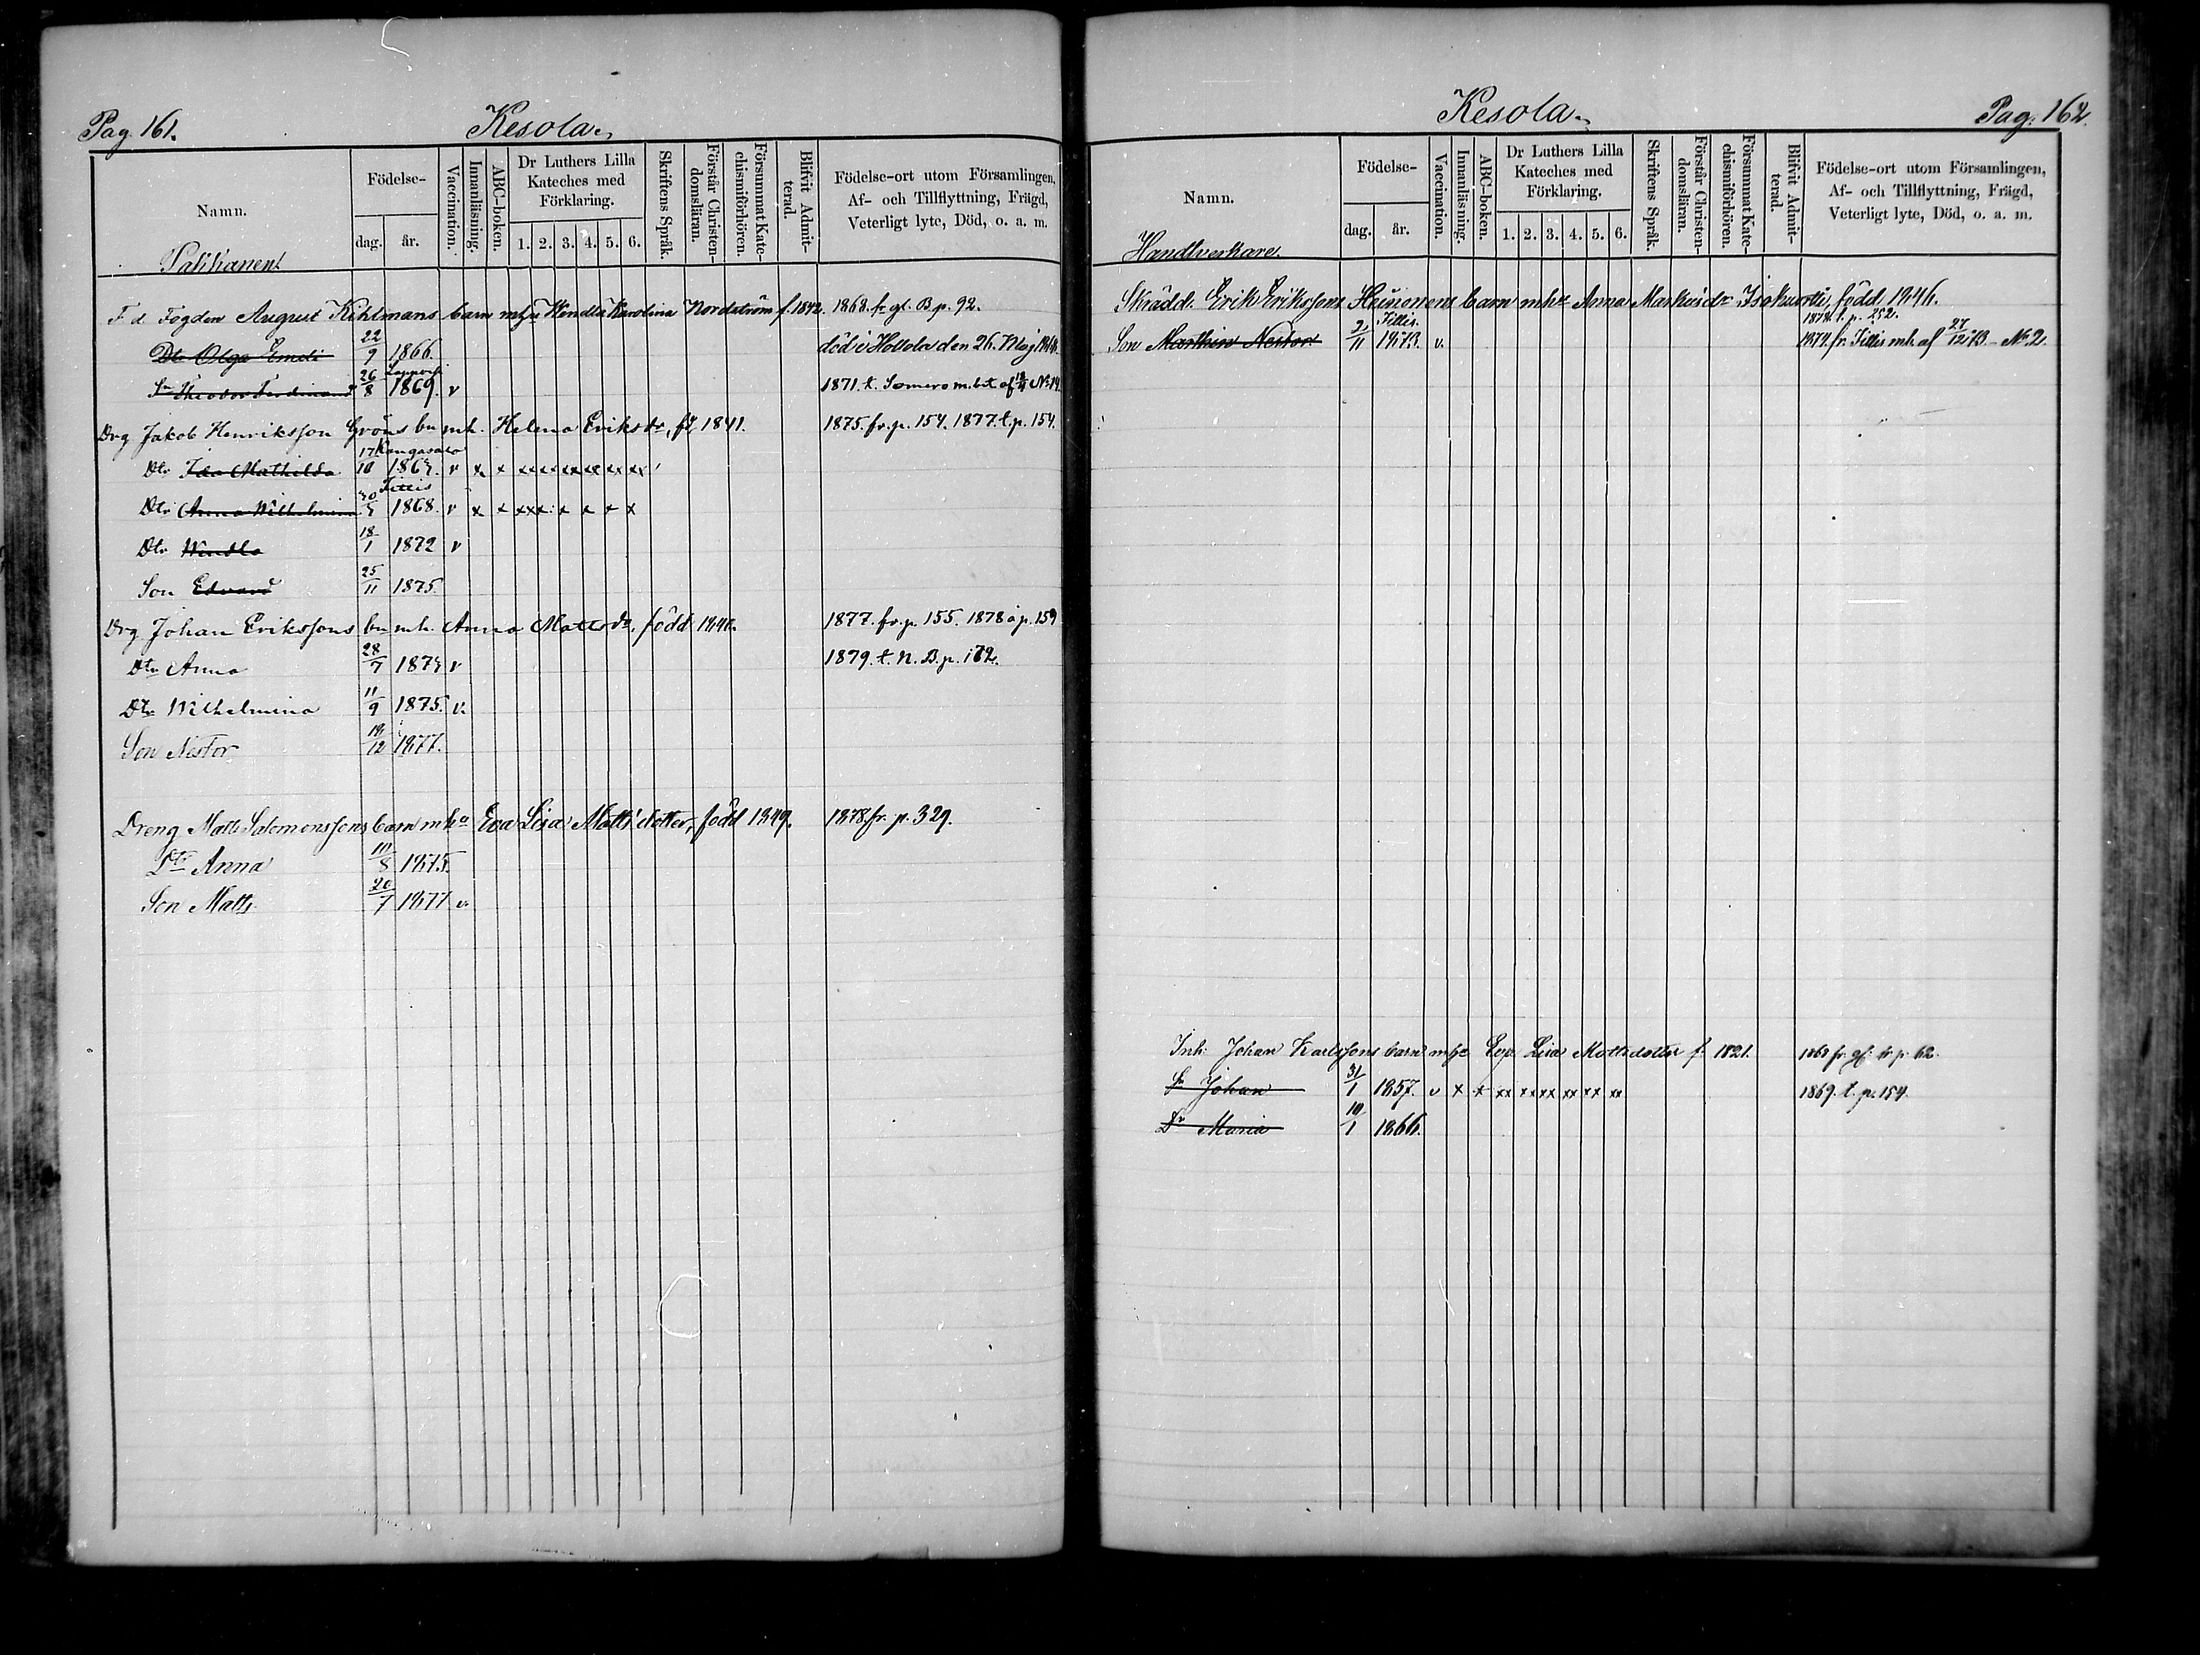 Pag. 161. Kesola.
Namn. Födelse- dag. år. Vaccination. Innanläsning. ABC-boken. Dr Luthers Lilla Kateches med Förklaring. 1. 2. 3. 4. 5. 6. Skriftens Språk. Förstår Christendomsläran. Försummat Katechismiförhören. Blifvit Admitterad. Födelse-ort utom Församlingen, Af- och Tillflyttning, Frägd, Veterligt lyte, Död, o. a. m.
F. d. Fogden August Kihlmans barn mhu Hendla Karolina Nordström f. 1842. 1868. fr gl. B. p. 92.
Dtr Olga Emeli 22/9 1866. död i Hollola den 26. Maj
Sn Theodor Ferdinand 26/8 1869. v 1871. t. Somero m. bet af No 14
Drg Jakob Henriksson Gröns bn mh. Helena Eriksdr, fd, 1841. 1875. fr. p. 154. 1877. t. p. 154.
Kangasala
Dtr Ida Mathilda 17/10 v x x xx xx xx xx xx xx
Tittis
Dtr Anna Wilhelmina 1868. v x x xxx x x x x
Dtr 18/1 1872 v
Son Edvard 25/11 1875.
Drg Johan Erikssons bn mh. Anna Mattsdr, född 1877. fr. p. 155. 1878 å p. 159
Dtr Anna 28/7 v 1879. t. N. B. p. 172.
Dtr Wilhelmina 11/9 1875. v.
Son Nestor 1877.
Dreng Matts Salomonssons barn mhu Eva Lisa Matts dotter, född 1849. 1878. fr. p. 329.
Dtr Anna 10/8 1875.
Son Matts 20/7 1877 v.
Kesola. Pag. 162.
Namn. Födelse- dag. år. Vaccination. Innanläsning. ABC-boken. Dr Luthers Lilla Kateches med Förklaring. 1. 2. 3. 4. 5. 6. Skriftens Språk. Förstår Christendomsläran. Försummat Katechismiförhören. Blifvit Admitterad. Födelse-ort utom Församlingen, Af- och Tillflyttning, Frägd, Veterligt lyte, Död, o. a. m.
Handtverkare.
Skrädd. Erik Erikssons barn mhu Anna Markusdr född 1846.
Tittis. t. p. 252.
Son Nestor 1873. v. fr. Tittis mb. af 27/12 73 No. 2.
Inh. Johan Karlssons barn mhu Eva Lisa Mattsdotter f. 1821. 1868 fr. gl. b. p. 62.
Sn Johan 31/1 1857. v x x xx xx xx xx xx xx 1869. t. p. 154.
Dr Maria 10/1 1866.